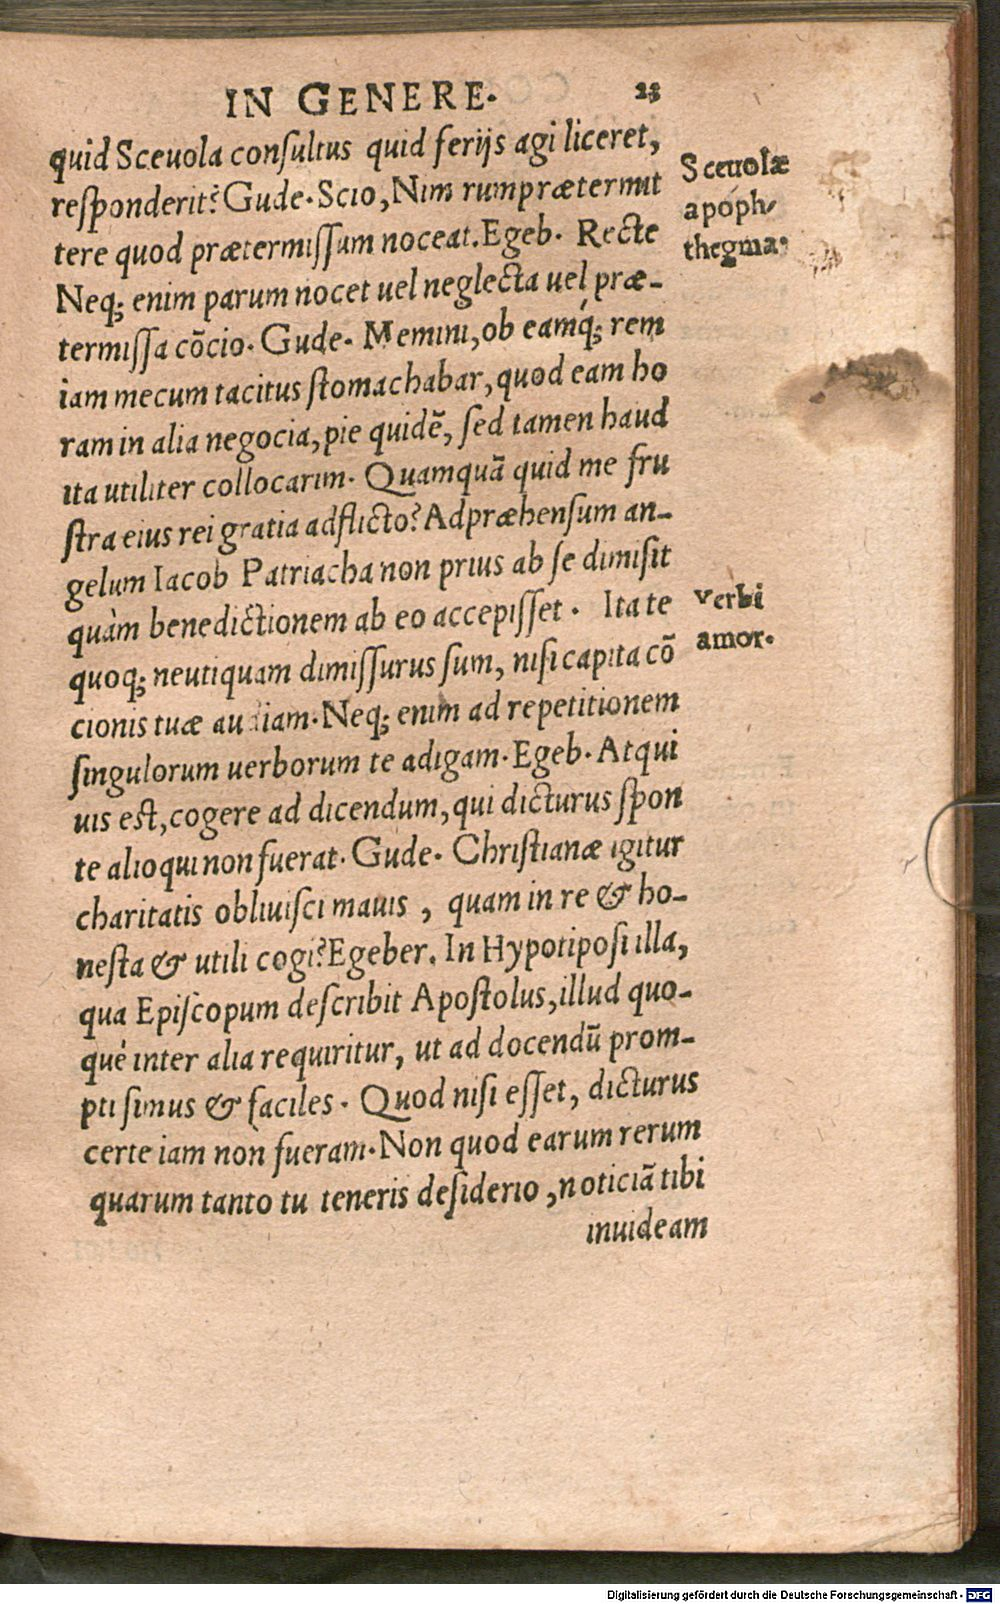 IN GENERE. 23
quid Sceuola consultus quid ferijs agi liceret,
responderit? Gude. Scio, Nim rum prætermit
tere quod prætermissum noceat. Egeb. Recte
Neq; enim parum nocet uel neglecta uel præ-
termissa cõcio. Gude. Memini, ob eamq́; rem
iam mecum tacitus stomachabar, quod eam ho
ram in alia negocia, pie quidẽ, sed tamen haud
ita utiliter collocarim. Quamquã quid me fru
stra eius rei gratia adflicto? Adpræhensum an-
gelum Iacob Patriacha non prius ab se dimisit
quàm benedictionem ab eo accepisset. Ita te
quoq; neutiquam dimissurus sum, nisi capita cõ
cionis tuæ audiam. Neq; enim ad repetitionem
singulorum uerborum te adigam. Egeb. Atqui
uis est, cogere ad dicendum, qui dicturus spon
te alioqui non fuerat. Gude. Christianæ igitur
charitatis obliuisci mauis, quam in re & ho-
nesta & utili cogi? Egeber. In Hypotiposi illa,
qua Episcopum describit Apostolus, illud quo-
què inter alia requiritur, ut ad docendũ prom-
pti simus & faciles. Quod nisi esset, dicturus
certe iam non fueram. Non quod earum rerum
quarum tanto tu teneris desiderio, noticiã tibi
inuideam
Sceuolæ
apoph-
thegma.
verbi
amor.
Digitalisierung gefördert durch die Deutsche Forschungsgemeinschaft - DFG